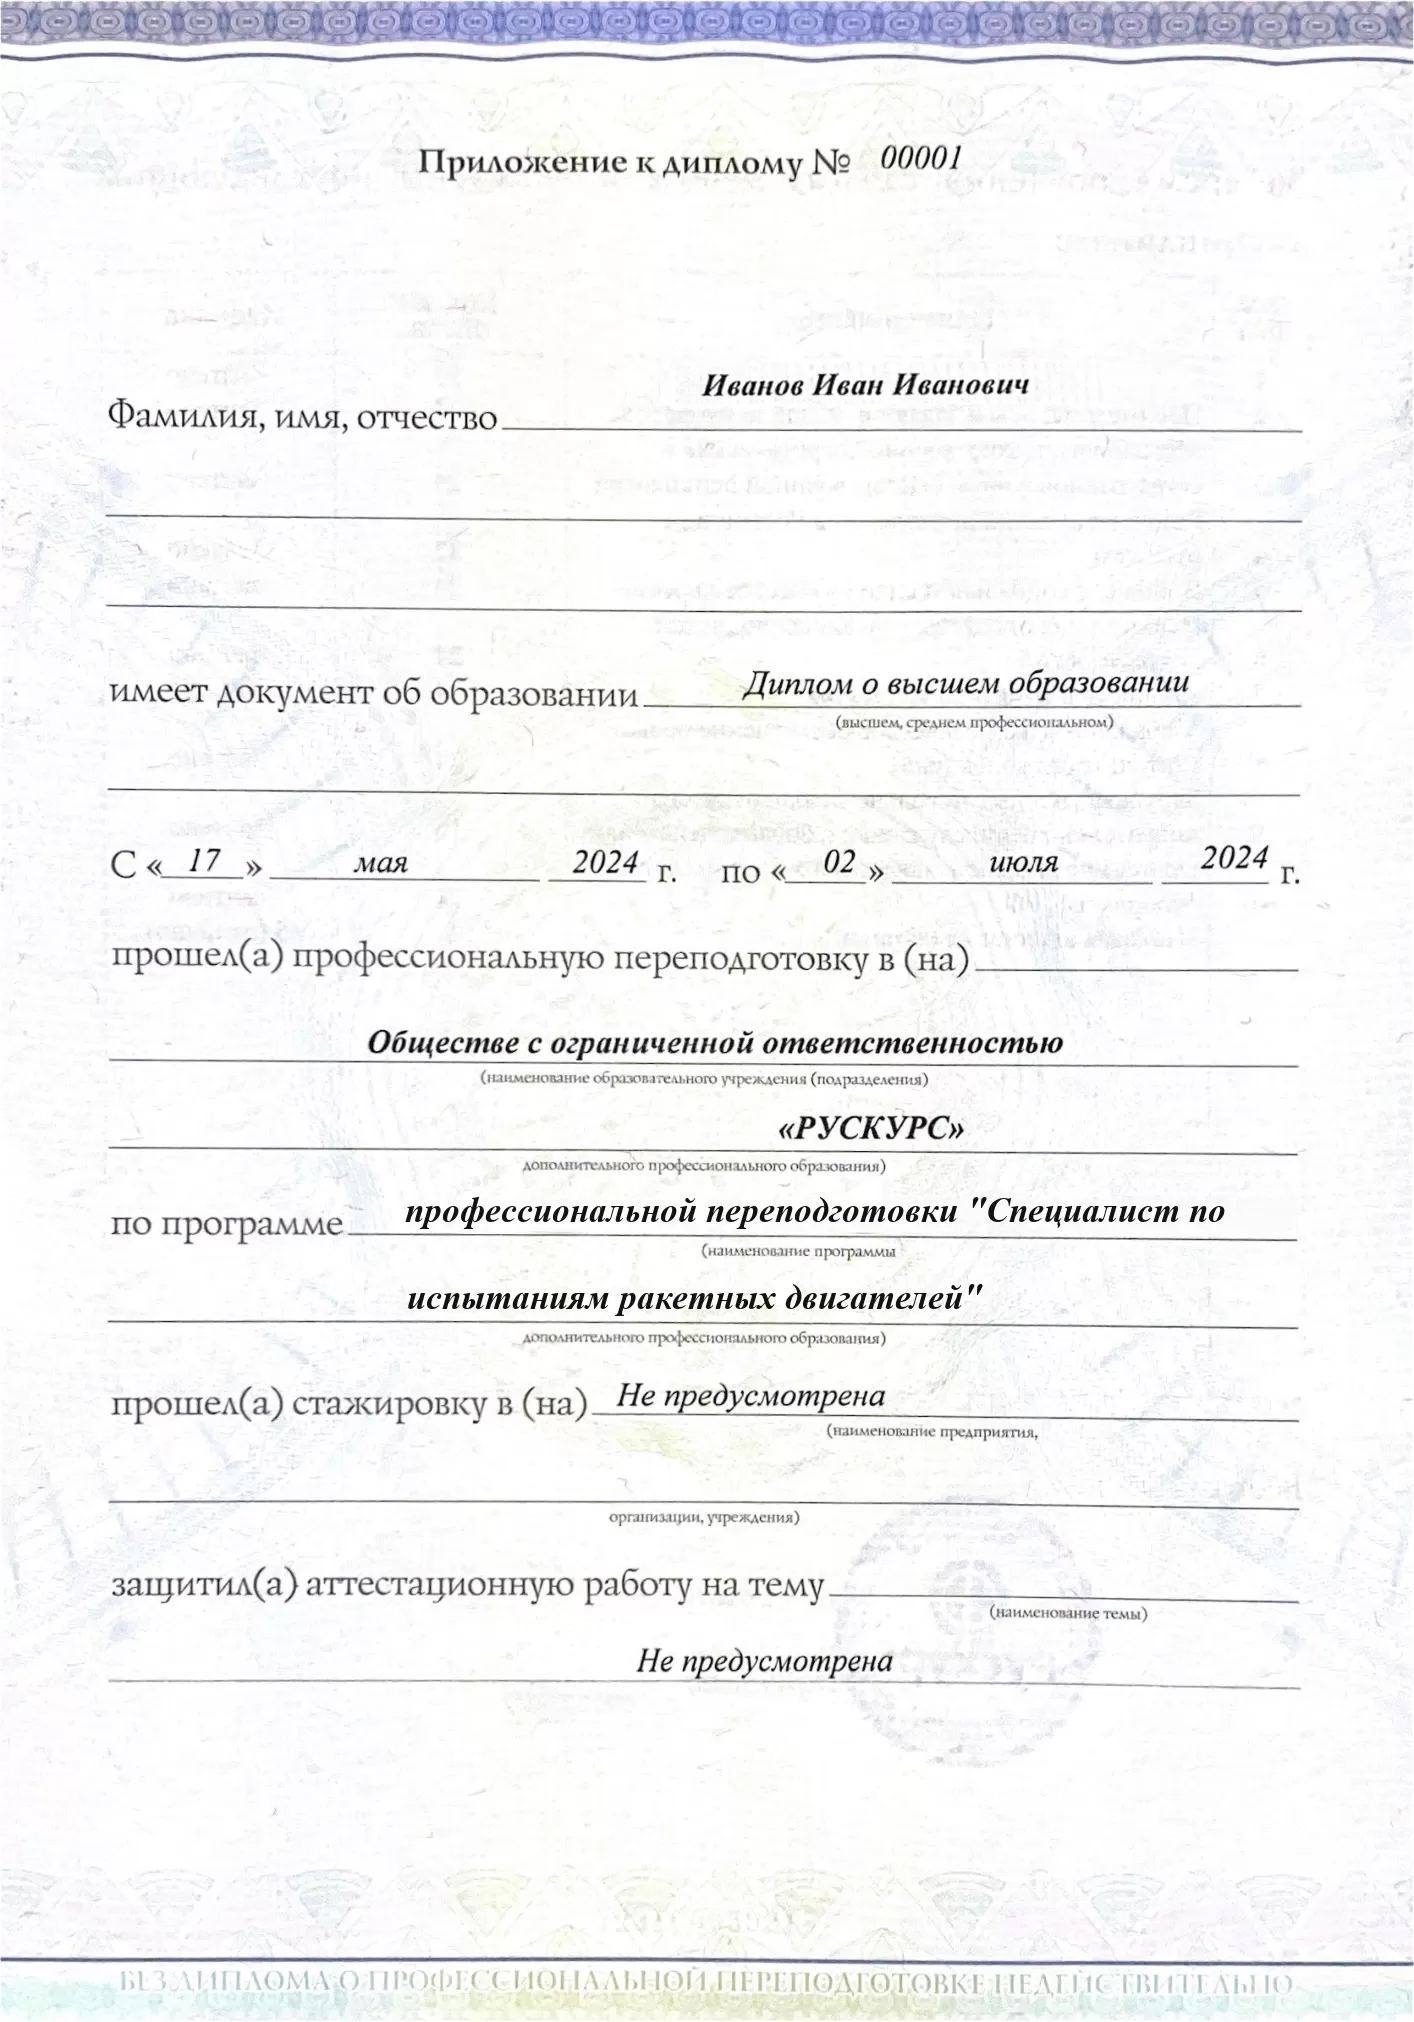 Приложение к диплому № 00001
Иванов Иван Иванович
Фамилия, имя, отчество
имеет документ об образовании Диплом о высшем образовании
(высшем, среднем профессиональном)
С « 17 » мая 2024 г. по « 02 » июля 2024 г.
прошел(а) профессиональную переподготовку в (на)
Обществе с ограниченной ответственностью
(наименование образовательного учреждения (подразделения)
«РУСКУРС»
дополнительного профессионального образования)
по программе профессиональной переподготовки "Специалист по
(наименование программы
испытаниям ракетных двигателей"
дополнительного профессионального образования)
прошел(а) стажировку в (на) Не предусмотрена
(наименование предприятия,
организации, учреждения)
защитил(а) аттестационную работу на тему
(наименование темы)
Не предусмотрена
БЕЗ ДИПЛОМА О ПРОФЕССИОНАЛЬНОЙ ПЕРЕПОДГОТОВКЕ НЕДЕЙСТВИТЕЛЬНО